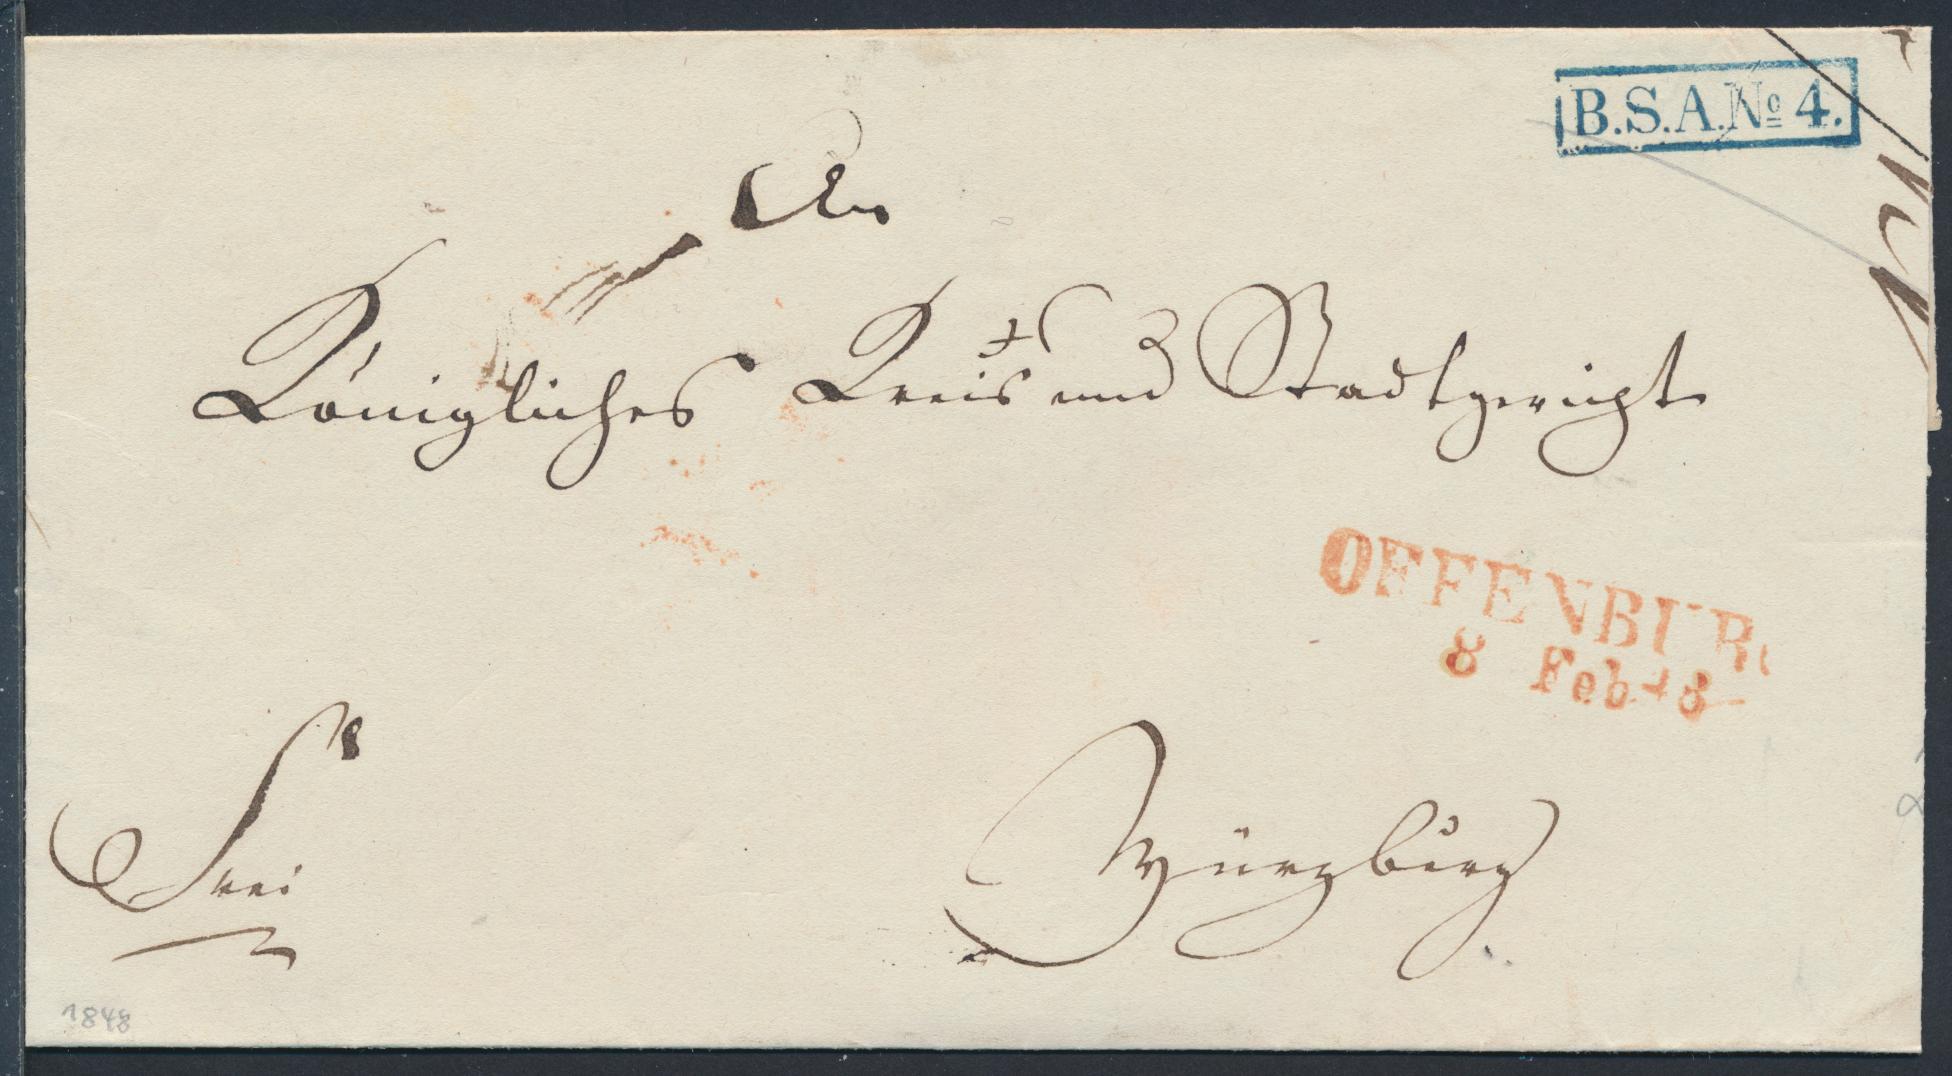 B.S.A.Nº 4.
An
Königliches Kreis und Stadtgericht
OFFENBUR
8 Feb 48
Frei
Würzburg
1848